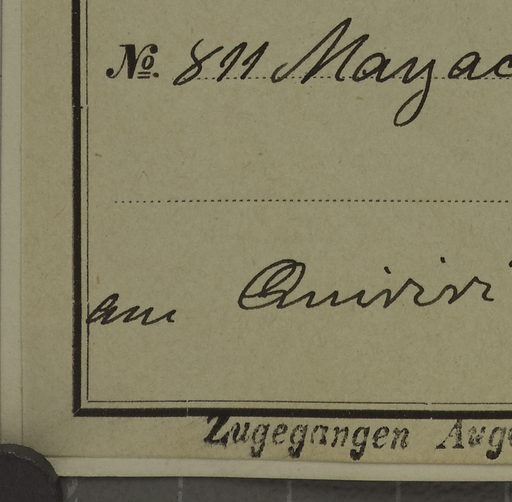 No. 811 Mayac
am Quiriri
Zugegangen Aug